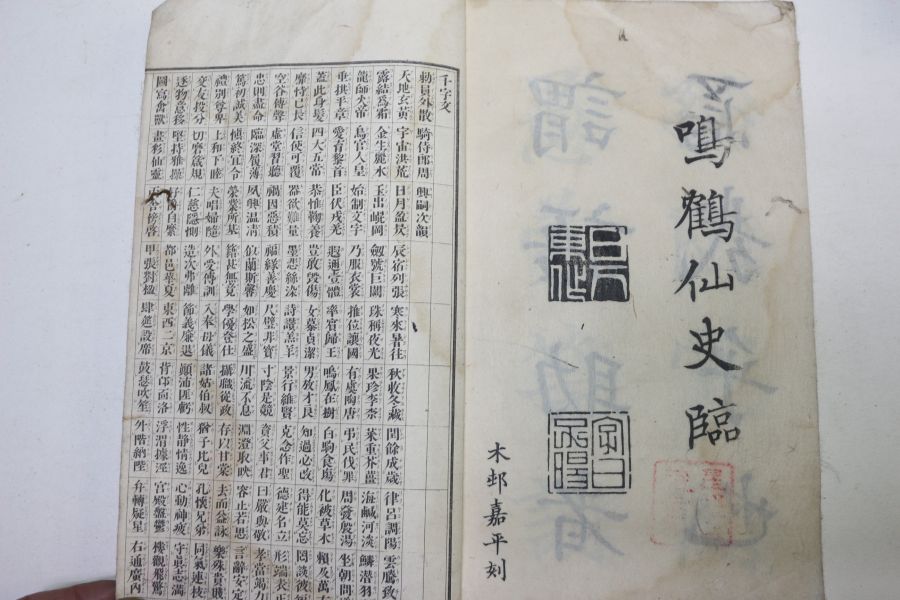 鳴鶴仙史臨
木邨嘉平刻
千字文
勅員外散騎侍郎周興嗣次韻
天地玄黃宇宙洪荒日月盈昃辰宿列張寒來暑往秋收冬藏閏餘成歲律呂調陽雲騰致
露結爲霜金生麗水玉出崐岡劔號巨闕珠稱夜光果珍李柰菜重芥薑海鹹河淡鱗潛羽
龍師火帝鳥官人皇始制文字乃服衣裳推位讓國有虞陶唐弔民伐罪周發殷湯坐朝問
垂拱平章愛育黎首臣伏戎羌遐邇壹體率賓歸王鳴鳳在樹白駒食場化被草木賴及萬
蓋此身髮四大五常恭惟鞠養豈敢毀傷女慕貞潔男效才良知過必改得能莫忘罔談彼
靡恃己長信使可覆器欲難量墨悲絲染詩讚羔羊景行維賢克念作聖德建名立形端表正
空谷傳聲虛堂習聽禍因惡積福緣善慶尺璧非寶寸陰是競資父事君曰嚴與敬孝當竭力
忠則盡命臨深履薄夙興溫凊似蘭斯馨如松之盛川流不息淵澄取映容止若思言辭安定
篤初誠美慎終宜令榮業所基籍甚無竟學優登仕攝職從政存以甘棠去而益詠樂殊貴賤
禮別尊卑上和下睦夫唱婦隨外受傅訓入奉母儀諸姑伯叔猶子比兒孔懷兄弟同氣連枝
交友投分切磨箴規仁慈隱惻造次弗離節義廉退顛沛匪虧性靜情逸心動神疲守眞志滿
逐物意移堅持雅操好自縻都邑華夏東西二京背邙面洛浮渭據涇宮殿盤鬱樓觀飛驚
圖寫禽獸畫彩仙靈舍傍啓甲帳對楹肆筵設席鼓瑟吹笙升階納陛弁轉疑星右通廣內